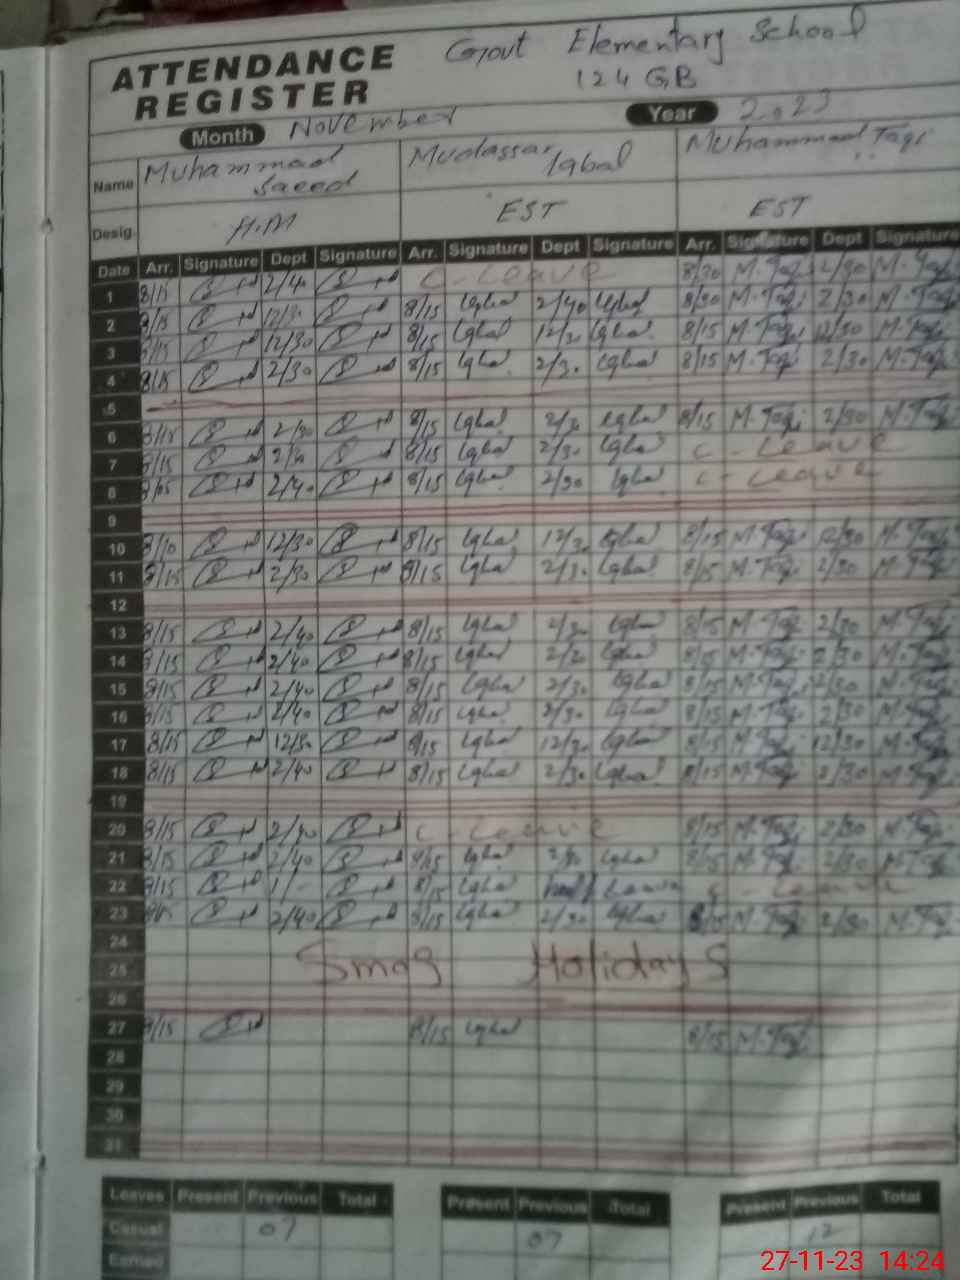 ATTENDANCE REGISTER
Govt Elementary School
124 GB
Month November Year 2023
Name Muhammad Saeed Mudassar Iqbal Muhammad Taqi
Desig. H.M EST EST
Date Arr. Signature Dept Signature Arr. Signature Dept Signature Arr. Signature Dept Signature
1 8/15 2/40 C-Leave 8/30 M.Taqi 2/30 M.Taqi
2 8/15 12/30 8/15 Iqbal 2/40 Iqbal 8/30 M.Taqi 2/30 M.Taqi
3 8/15 12/30 8/15 Iqbal 12/30 Iqbal 8/15 M.Taqi 12/30 M.Taqi
4 8/15 2/30 8/15 Iqbal 2/30 Iqbal 8/15 M.Taqi 2/30 M.Taqi
5
6 8/15 2/30 8/15 Iqbal 2/30 Iqbal 8/15 M.Taqi 2/30 M.Taqi
7 8/15 8/15 Iqbal 2/30 Iqbal C-Leave
8 8/15 2/40 8/15 Iqbal 2/30 Iqbal C-Leave
9
10 8/10 12/30 8/15 Iqbal 12/30 Iqbal 8/15 M.Taqi 12/30 M.Taqi
11 8/15 2/30 8/15 Iqbal 2/30 Iqbal 8/15 M.Taqi 2/30 M.Taqi
12
13 8/15 2/40 8/15 Iqbal 2/30 Iqbal 8/15 M.Taqi 2/30 M.Taqi
14 8/15 2/40 8/15 Iqbal 2/30 Iqbal 8/15 M.Taqi 2/30 M.Taqi
15 8/15 2/40 8/15 Iqbal 2/30 Iqbal 8/15 M.Taqi 2/30 M.Taqi
16 8/15 2/40 8/15 Iqbal 2/30 Iqbal 8/15 M.Taqi 2/30 M.Taqi
17 8/15 12/30 8/15 Iqbal 12/30 Iqbal 8/15 M.Taqi 12/30 M.Taqi
18 8/15 2/40 8/15 Iqbal 2/30 Iqbal 8/15 M.Taqi 2/30 M.Taqi
19
20 8/15 2/40 C-Leave 8/15 M.Taqi 2/30 M.Taqi
21 8/15 2/40 8/15 Iqbal 2/30 Iqbal 8/15 M.Taqi 2/30 M.Taqi
22 8/15 1/- 8/15 Iqbal half Leave C-Leave
23 8/15 2/40 8/15 Iqbal 2/30 Iqbal 8/15 M.Taqi 2/30 M.Taqi
24
25 Smog Holidays
26
27 8/15 8/15 Iqbal 8/15 M.Taqi
28
29
30
31
Leaves Present Previous Total Present Previous Total Present Previous Total
Casual 07 07 12
Earned
27-11-23 14:24